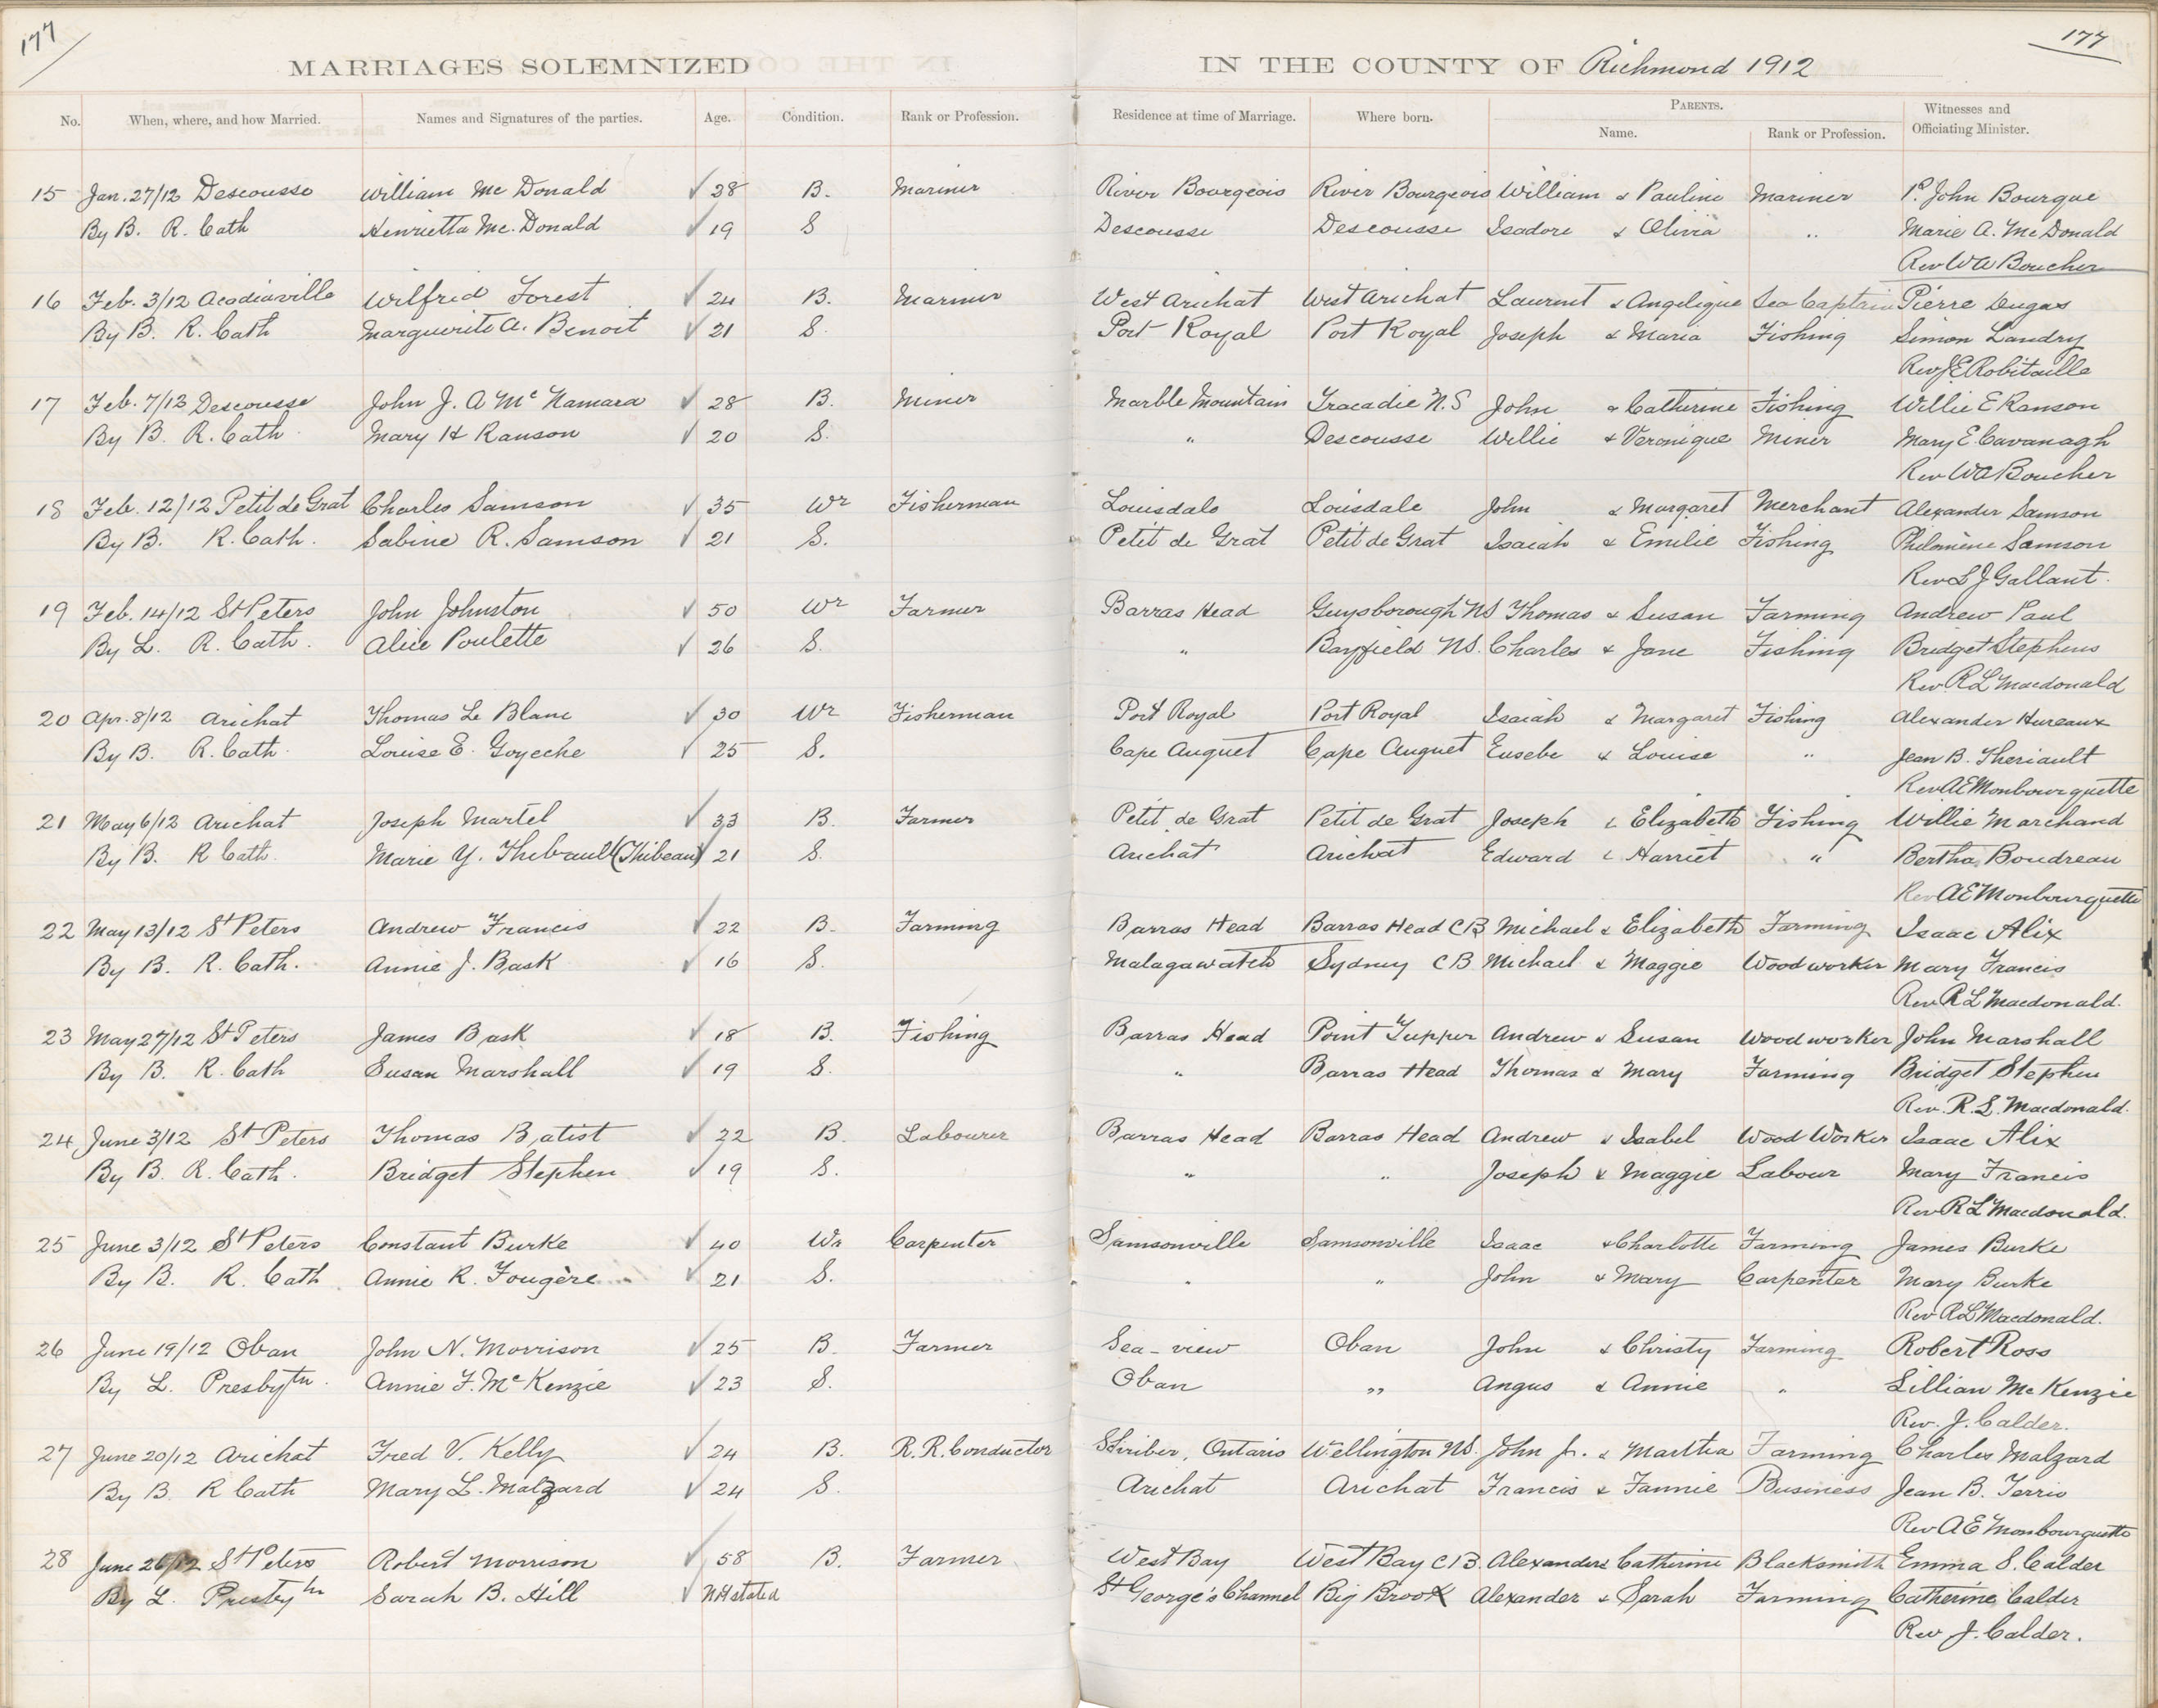 177
177
MARRIAGES SOLEMNIZED IN THE COUNTY OF Richmond 1912
No. When, where, and how Married. Names and Signatures of the parties. Age. Condition. Rank or Profession. Residence at time of Marriage. Where born. PARENTS. Name. Rank or Profession. Witnesses and Officiating Minister.
15 Jan. 27/12 Descousse William Mc Donald ✓ 28 B. Mariner River Bourgeois River Bourgeois William & Pauline Mariner P. John Bourque
By B. R. Cath Henrietta Mc. Donald ✓ 19 S Descousse Descousse Isadore & Olivia " Marie A. Mc Donald
Rev W A Boucher
16 Feb. 3/12 Acadiaville Wilfrid Forest ✓ 24 B. Mariner West Arichat West Arichat Laurent & Angelique Sea Captain Pierre Dugas
By B. R. Cath Marguerite A. Benoit ✓ 21 S. Port Royal Port Royal Joseph & Maria Fishing Simon Landry
Rev J E Robitaille
17 Feb. 7/12 Descousse John J. A Mc Namara ✓ 28 B. Miner Marble Mountain Tracadie N.S John & Catherine Fishing Willie E Ranson
By B. R. Cath. Mary H Ranson ✓ 20 S. " Descousse Willie & Veronique Miner Mary E. Cavanagh
Rev W A Boucher
18 Feb. 12/12 Petit de Grat Charles Samson ✓ 35 Wr Fisherman Louisdale Louisdale John & Margaret Merchant Alexander Samson
By B. R. Cath. Sabine R. Samson ✓ 21 S. Petit de Grat Petit de Grat Isaiah & Emilie Fishing Philomène Samson
Rev L J Gallant.
19 Feb. 14/12 St Peters John Johnston ✓ 50 Wr Farmer Barras Head Guysborough NS Thomas & Susan Farming Andrew Paul
By L. R. Cath. Alice Poulette ✓ 26 S. " Bayfield NS. Charles & Jane Fishing Bridget Stephens
Rev R L Macdonald
20 Apr. 8/12 Arichat Thomas Le Blanc ✓ 30 Wr Fisherman Port Royal Port Royal Isaiah & Margaret Fishing Alexander Hureaux
By B. R. Cath. Louise E. Goyeche ✓ 25 S. Cape Auguet Cape Auguet Eusebe & Louise " Jean B. Theriault
Rev A E Monbourquette
21 May 6/12 Arichat Joseph Martel ✓ 33 B. Farmer Petit de Grat Petit de Grat Joseph & Elizabeth Fishing Willie Marchand
By B. R Cath. Marie Y. Thibault (Thibeau) 21 S. Arichat Arichat Edward & Harriet " Bertha Boudreau
Rev A E Monbourquette
22 May 13/12 St Peters Andrew Francis ✓ 22 B. Farming Barras Head Barras Head CB Michael & Elizabeth Farming Isaac Alix
By B. R. Cath. Annie J. Bask ✓ 16 S. Malagawatch Sydney CB Michael & Maggie Woodworker Mary Francis
Rev R L Macdonald.
23 May 27/12 St Peters James Bask ✓ 18 B. Fishing Barras Head Point Tupper Andrew & Susan Woodworker John Marshall
By B. R. Cath Susan Marshall ✓ 19 S. " Barras Head Thomas & Mary Farming Bridget Stephen
Rev. R. L. Macdonald.
24 June 3/12 St Peters Thomas Batist ✓ 22 B. Labourer Barras Head Barras Head Andrew & Isabel Wood Worker Isaac Alix
By B. R. Cath. Bridget Stephen ✓ 19 S. " " Joseph & Maggie Labour Mary Francis
Rev R L Macdonald.
25 June 3/12 St Peters Constant Burke ✓ 40 Wr Carpenter Samsonville Samsonville Isaac & Charlotte Farming James Burke
By B. R. Cath Annie R. Fougère ✓ 21 S. " " John & Mary Carpenter Mary Burke
Rev R L Macdonald.
26 June 19/12 Oban John N. Morrison ✓ 25 B. Farmer Sea-view Oban John & Christy Farming Robert Ross
By L. Presbytn. Annie F. Mc Kenzie ✓ 23 S. Oban " Angus & Annie " Lillian Mc Kenzie
Rev. J. Calder.
27 June 20/12 Arichat Fred V. Kelly ✓ 24 B. R.R. Conductor Shriber, Ontario Wellington NS. John Jr. & Martha Farming Charles Malzard
By B. R Cath Mary L. Malzard ✓ 24 S. Arichat Arichat Francis & Fannie Business Jean B. Terrio
Rev A E Monbourquette
28 June 26/12 St Peters Robert Morrison ✓ 58 B. Farmer West Bay West Bay C B. Alexander & Catherine Blacksmith Emma S. Calder
By L. Presbytn Sarah B. Hill ✓ Not stated St George's Channel Big Brook Alexander & Sarah Farming Catherine Calder
Rev J. Calder.